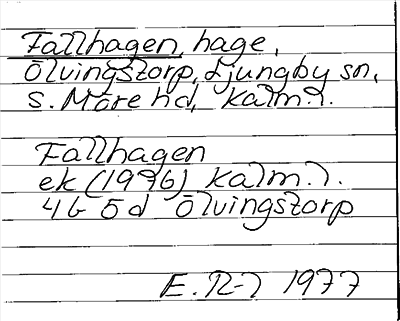 Fallhagen, hage,
Ölvingstorp, Ljungby sn,
S. Möre hd, Kalm. l.
Fallhagen
ek (1976) Kalm. l.
4G 5d Ölvingstorp
E. R-l 1977